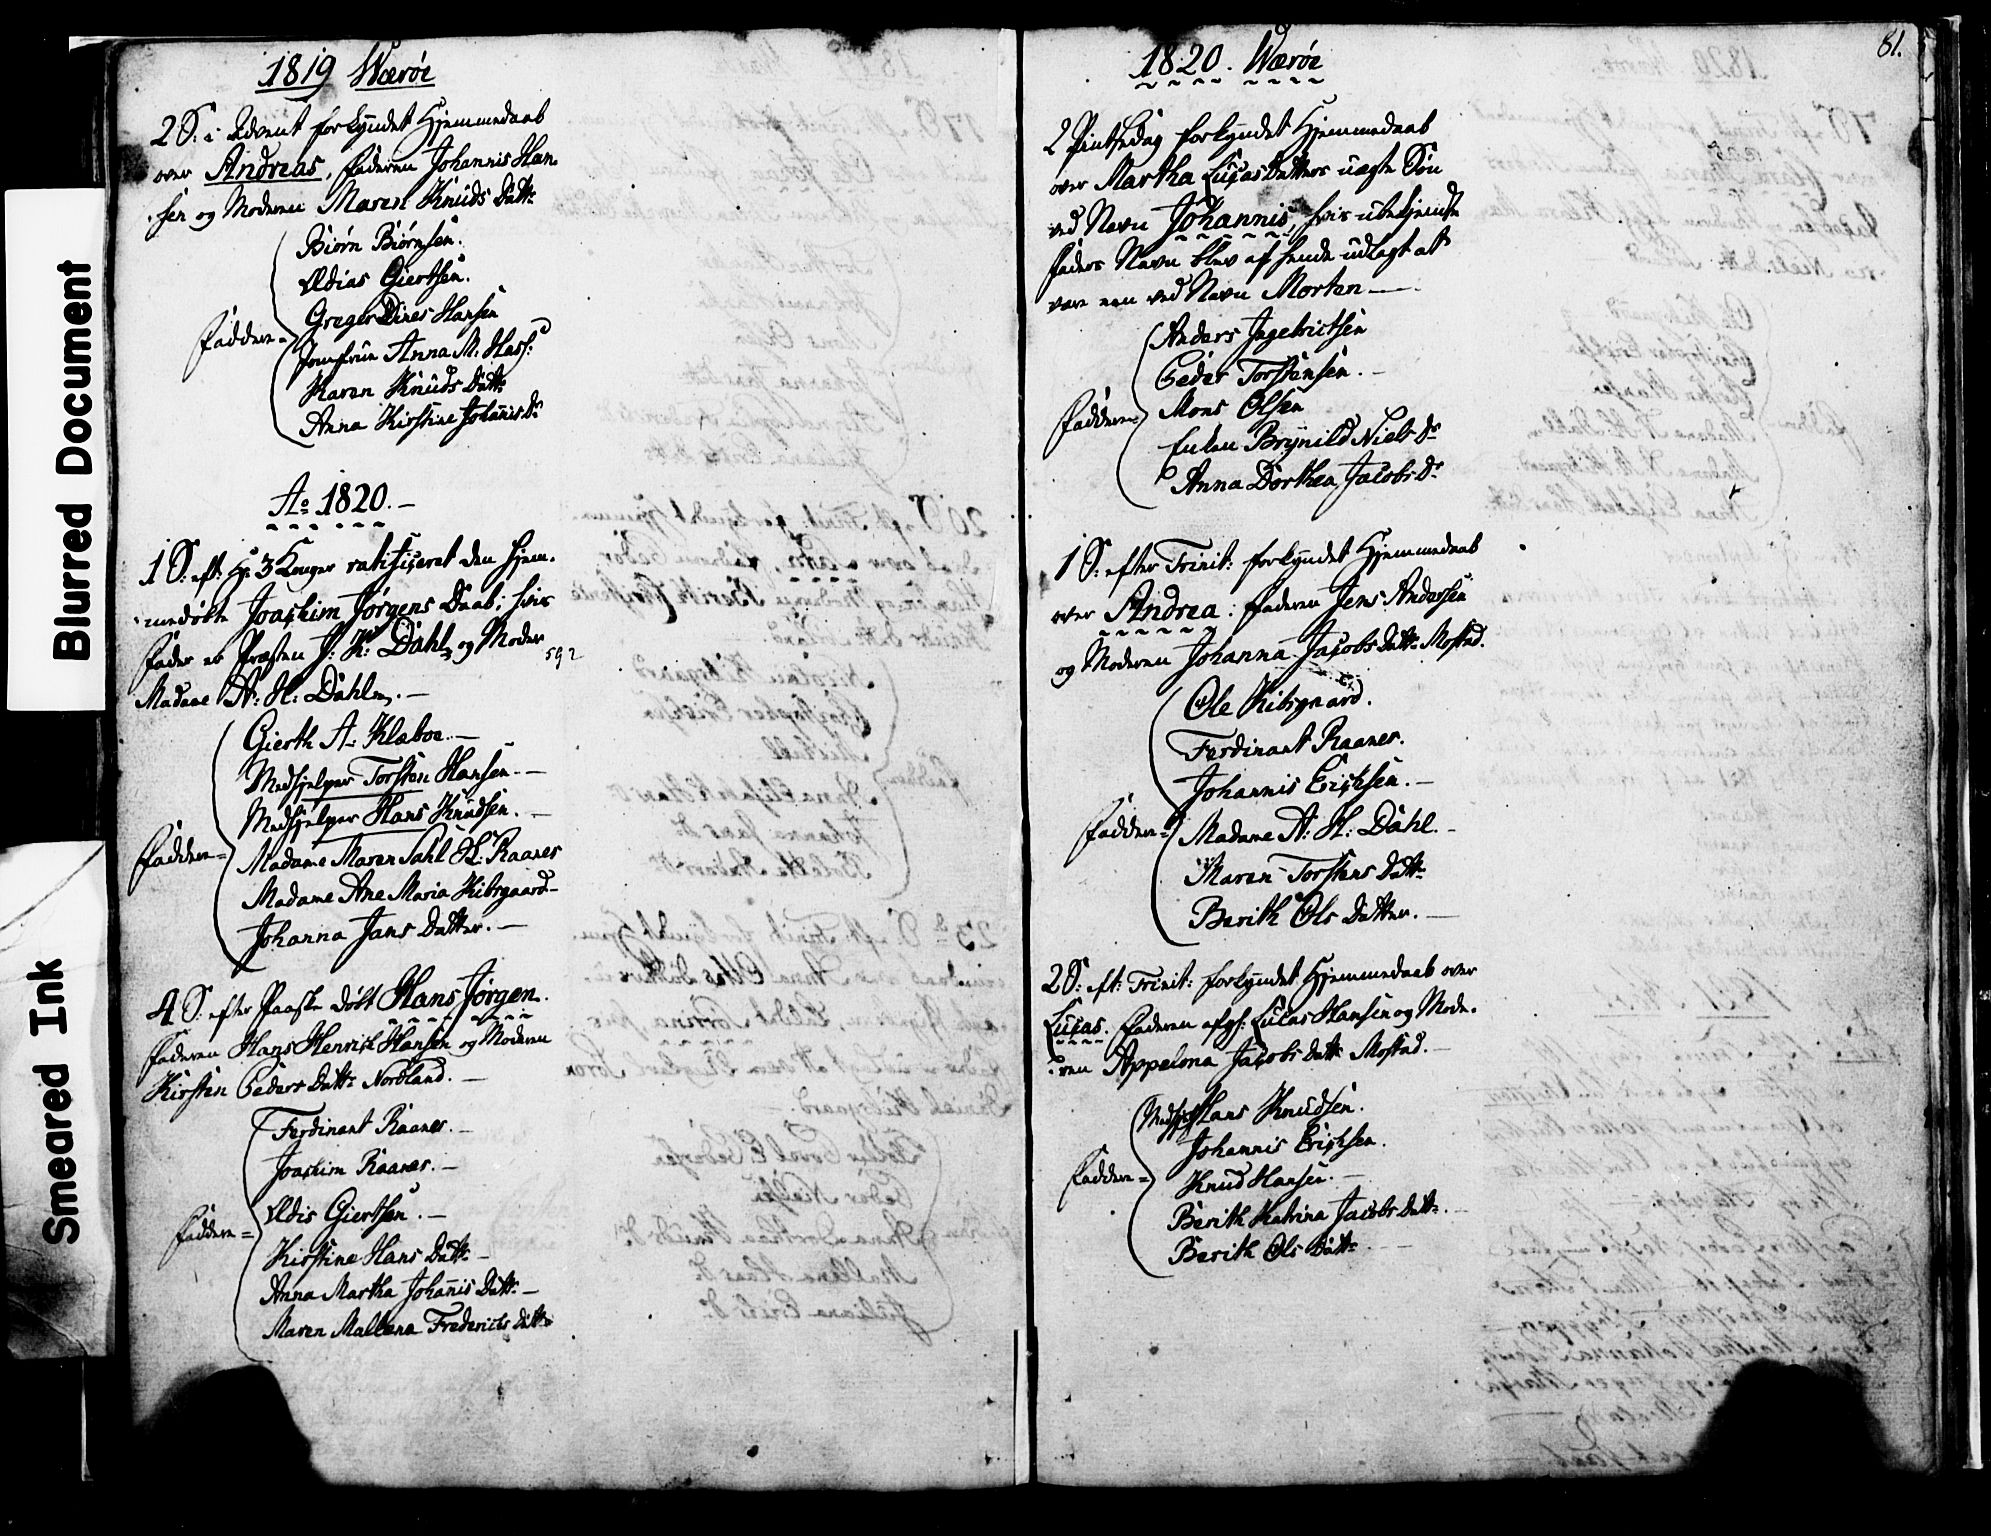 1819 Værøe
2 S: i Advent forkyndet Hjemmedaab
over Andreas. Faderen Johannis Han-
sen og Moderen Maren Knuds Dattr
Biørn Biørnsen.
Ædias Giertsen.
Greger Dines Hansen
Faddere =
Jomfrue Anna M. Hass:
Karen Knuds Dattr
Anna Kirstine Johanis Dr
Ao 1820. -
1 S: eft: H: 3 Konger ratificeret den hjem-
medøbte Joachim Jørgens Daab; hvis
Fader er Præsten J: K: Dahl, og Moder
592
Madame A: H: Dahl. -
Gierth A: Klæboe. -
Medhjelper Torsten Hansen. -
Medhjelper Hans Knudsen. -
Faddere =
Madame Maren Sahl H: Raanes
Madame Ane Maria Kibsgaard -
Johanna Jans Datter. -
4 S: efter Paaske døbt Hans Jørgen.
Faderen Hans Henrich Hansen og Moderen
Kirsten Peders Dattr Nordland. -
Ferdinant Raanes. -
Joachim Raanes. -
Ædis Giertsen. -
Faddere =
Kirstine Hans Dattr -
Anna Martha Johanis Dattr -
Maren Mallena Frederichs Dattr
81.
1820. Værøe
2 Pintsedag forkyndet Hjemmedaab
over Martha Lucas Datters uægte Søn
ved Navn Johannis, hvis ubekjendte
Faders Navn blev af hende udlagt at
være een ved Navn Morten -
Anders Ingebrictsen
Peder Torstensen. -
Faddere =
Mons Olsen
Enken Brynild Niels Dr
Anna Dorthea Jacobs Dr
1 S: efter Trinit: forkyndet Hjemmedaab
over Andrea: Faderen Jens Andersen
og Moderen Johanna Jacobs Dattr Mostad.
Ole Kibsgaard.
Ferdinant Raanes.
Johannis Erichsen. -
Faddere =
Madame A: H: Dahl. -
Maren Torstens Dattr
Berith Ols Datter. -
2 S: eft: Trinit: forkyndet Hjemmedaab over
Lucas. Faderen afgl: Lucas Hansen og Mode-
ren Appelona Jacobs Dattr Mostad. -
Medhj: Hans Knudsen.
Johannis Erichsen.
Faddere =
Knud Hansen. -
Berith Katrina Jacobs Dattr. -
Berith Ols Dattr -
Blurred Document
Smeared Ink